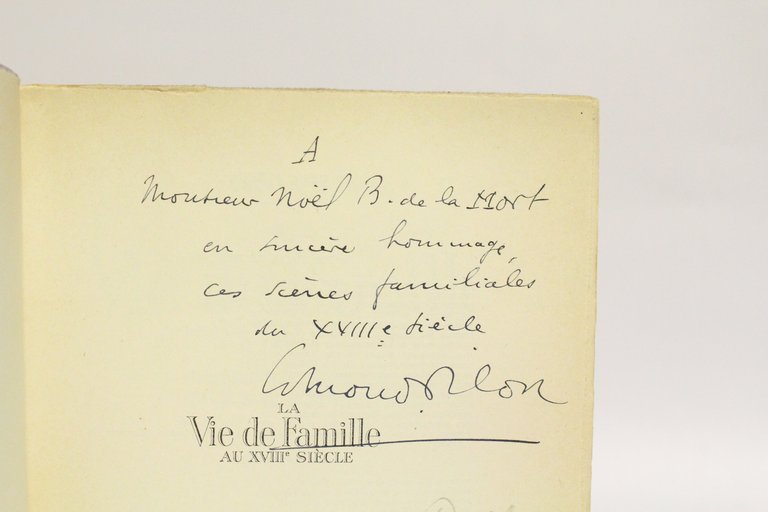 A
Monsieur Noël B. de la Mort
en sincère hommage,
ces scènes familiales
du XVIIIe siècle
Edmond Pilon
LA
Vie de Famille
AU XVIIIe SIÈCLE